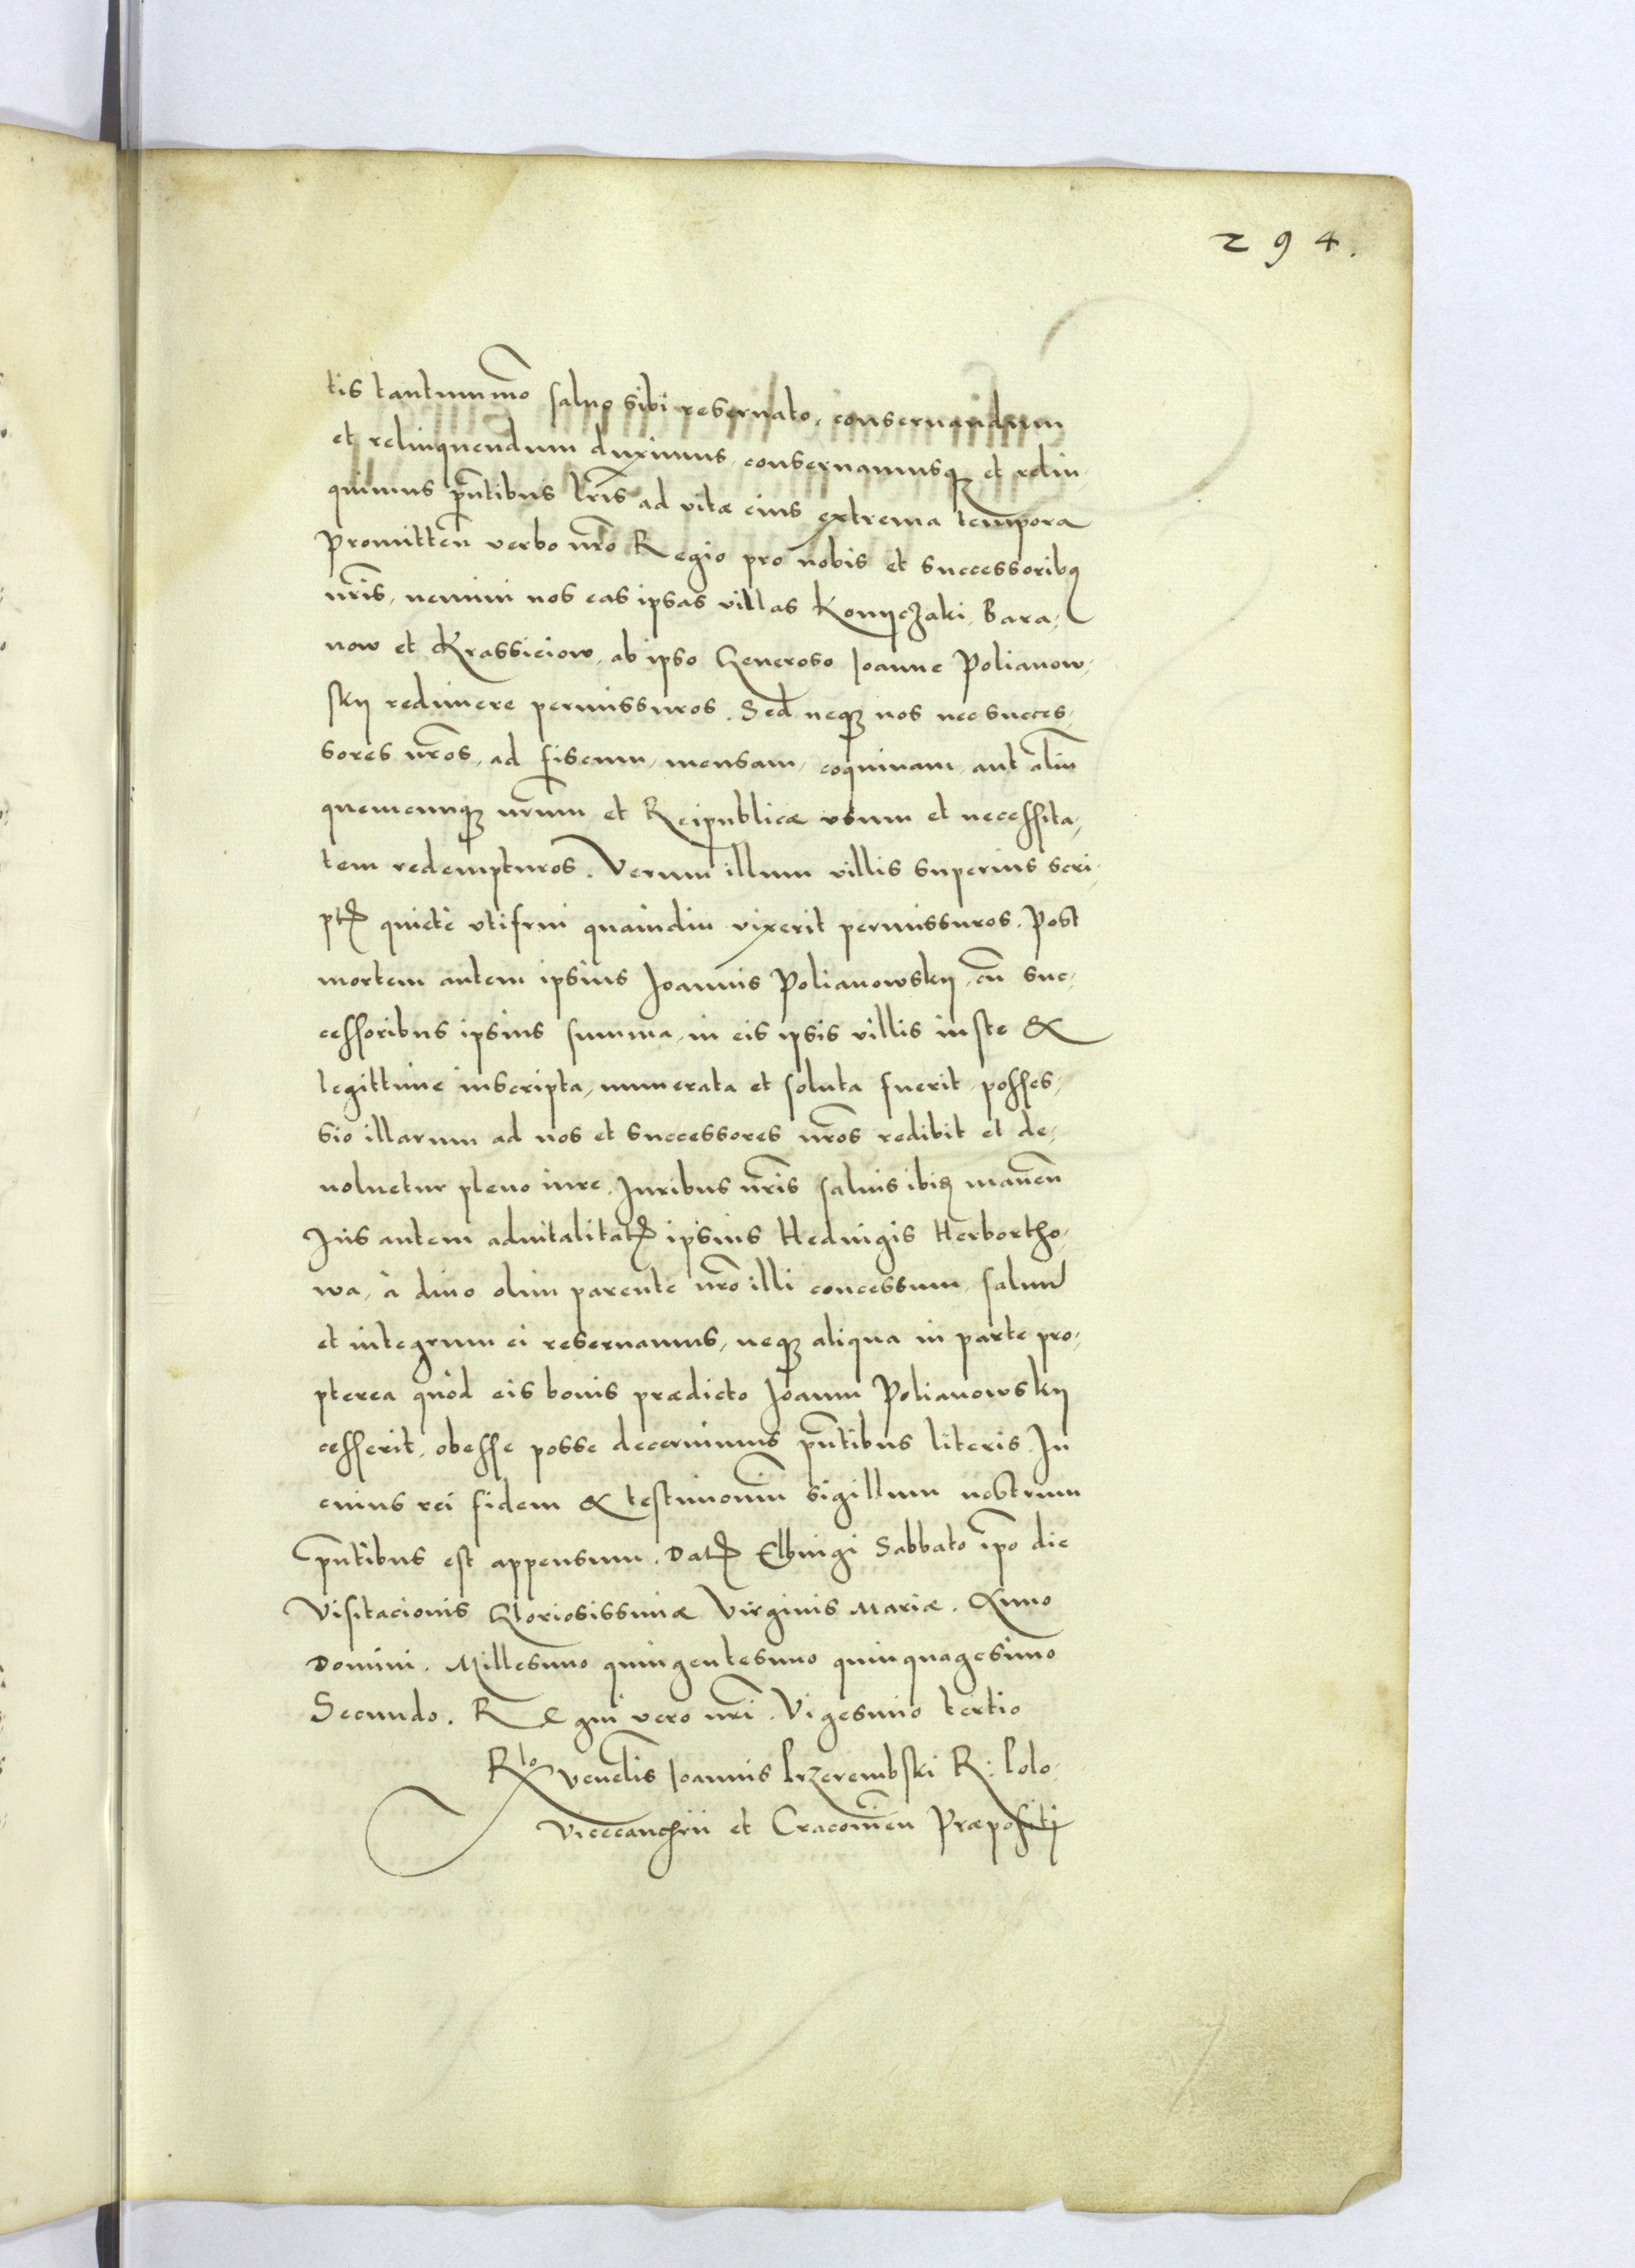 294.
tis tantummo salvo sibi reservato, conservandum
et relinquendum duximus, conservamusq3 et relin,
quimus pntibus lris ad vitæ eius extrema tempora
Promitten verbo nro Regio pro nobis et successoribq
nris, nemini nos eas ipsas villas Konyczaki, Bara,
now et Krassieiow, ab ipso Generoso Joanne Polianow,
skij redimere permissuros. Sed neq3 nos nec succes,
sores nros, ad fiscum, mensam, coquinam, aut aliu
quemcunq3 nrum et Reipublicæ usum et necessita,
tem redempturos. Verum illum villis superius scri,
pt quiete utifrui quamdiu vixerit permissuros. Post
mortem autem ipsius Joannis Polianowskij, cu suc,
cessoribus ipsius summa, in eis ipsis villis iuste &
legittime inscripta, numerata et soluta fuerit, posses,
sio illarum ad nos et successores nros redibit et de,
volvetur pleno iure. Juribus nris salvis ibiq manen
Jus autem advitalitat ipsius Hedvigis Herbortho,
wa, à divo olim parente nro illi concessum, salvu
et integrum ei reservamus, neq3 aliqua in parte pro,
pterea quòd eis bonis prædicto Joanni Polianowskij
cesserit, obesse posse decernimus pntibus literis. In
cuius rei fidem & testimonium sigillum nostrum
pntibus est appensum. Dat Elbingi Sabbato ipo die
Visitacionis Gloriosissimæ Virginis Mariæ. Anno
Domini. Millesimo quingentesimo quinquagesimo
Secundo. Regni vero nri. Vigesimo tertio
Rlo Venelis Joannis Przerembski R: Polo,
Vicecancrii et Cracovien Præpositi